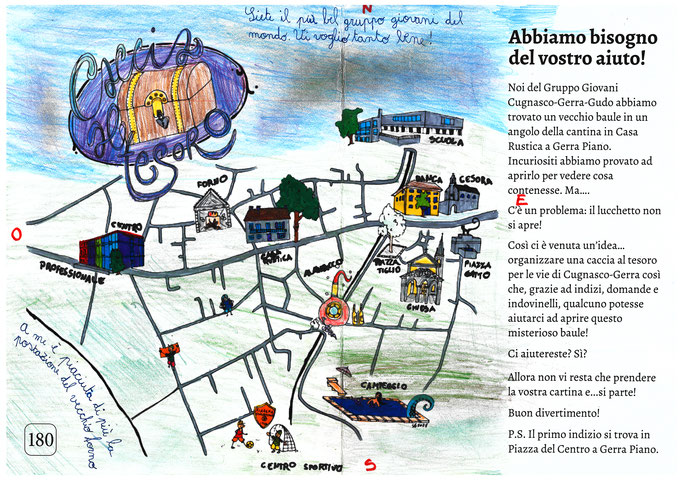 N
Siete il più bel gruppo giovani del
mondo. Vi voglio tanto bene!
Caccia
al
tesoro
SCUOLA
FORNO
BANCA
CESORA
E
O
CENTRO
PROFESSIONALE
CASA
RUSTICA
PIAZZA
TIGLIO
PIAZZA
CHIESA
CAMPEGGIO
A me è piaciuta di più la
postazione del vecchio forno
180
CENTRO SPORTIVO
S
Abbiamo bisogno
del vostro aiuto!
Noi del Gruppo Giovani
Cugnasco-Gerra-Gudo abbiamo
trovato un vecchio baule in un
angolo della cantina in Casa
Rustica a Gerra Piano.
Incuriositi abbiamo provato ad
aprirlo per vedere cosa
contenesse. Ma....
C'è un problema: il lucchetto non
si apre!
Così ci è venuta un'idea...
organizzare una caccia al tesoro
per le vie di Cugnasco-Gerra così
che, grazie ad indizi, domande e
indovinelli, qualcuno potesse
aiutarci ad aprire questo
misterioso baule!
Ci aiutereste? Sì?
Allora non vi resta che prendere
la vostra cartina e...si parte!
Buon divertimento!
P.S. Il primo indizio si trova in
Piazza del Centro a Gerra Piano.